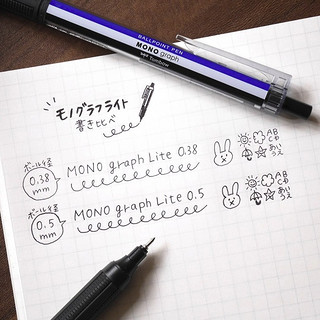 BALLPOINT PEN
MONO graph
Tombow
モノグラフライト
書き比べ
ボール径
0.38
mm
MONO graph Lite 0.38
AB
Cや
あい
うえ
ボール径
0.5
mm
MONO graph Lite 0.5
AB
Cや
あい
うえ